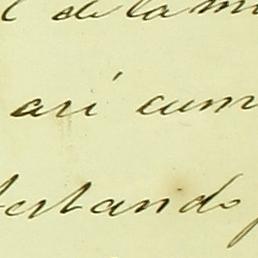 l de la mi
así cum
festando